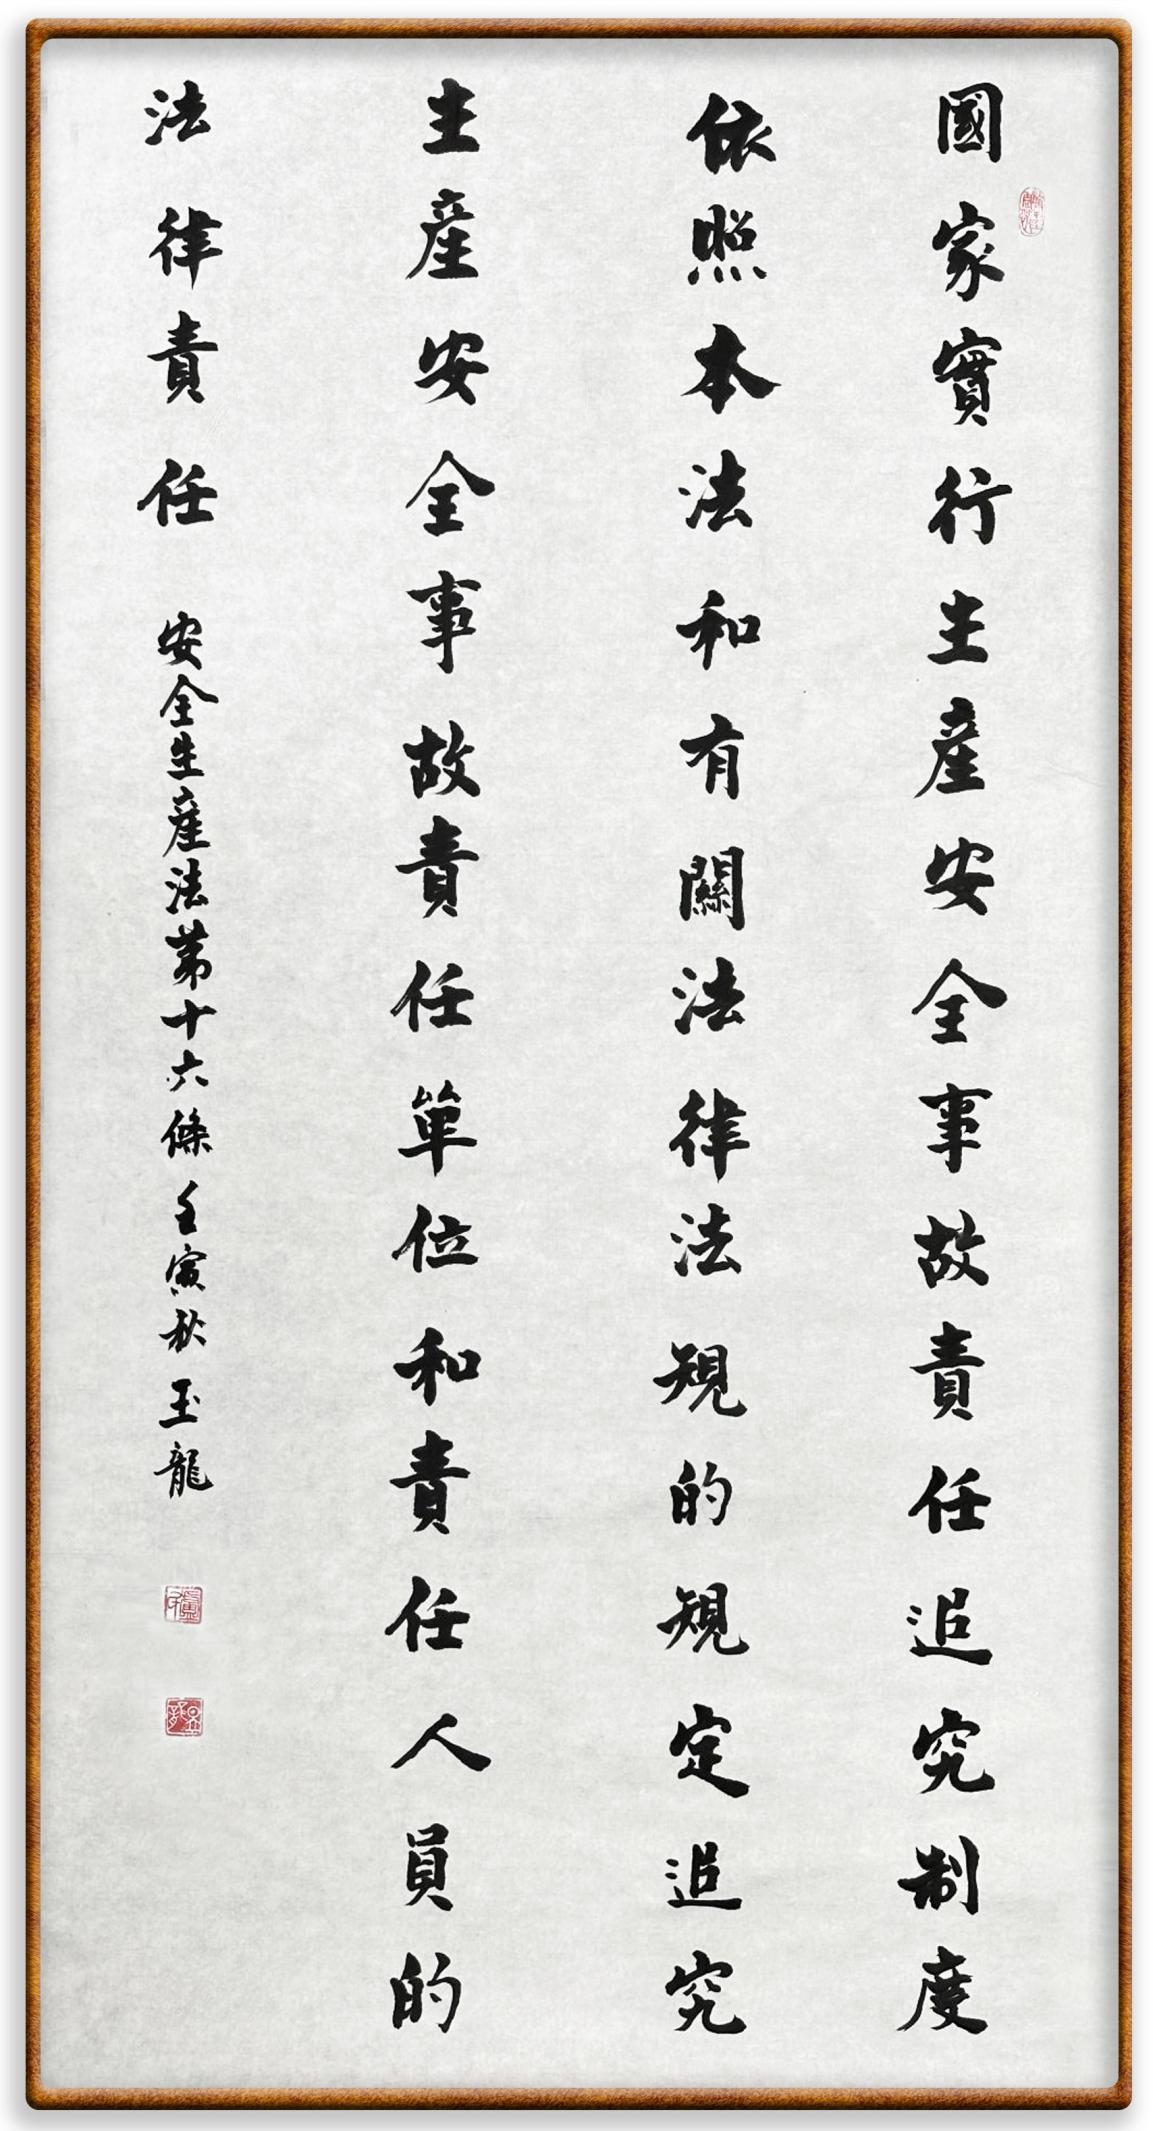 國家實行生產安全事故責任追究制度
依照本法和有關法律法規的規定追究
生產安全事故責任單位和責任人員的
法律責任
安全生產法第十六條 壬寅秋 玉龍